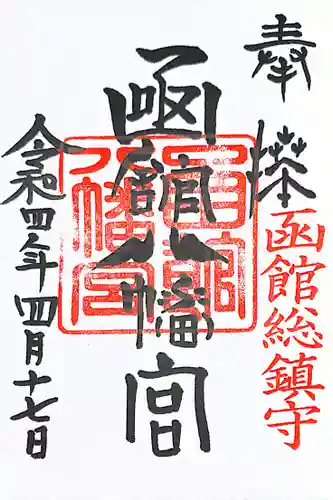 奉拝
函館総鎮守
函館八幡宮
函館八幡宮
令和四年四月十七日